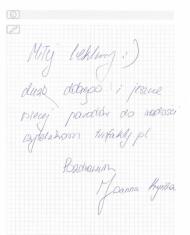 Miłej lektury :)
dużo dobrego i jeszcze
więcej powodów do radości
czytelnikom
Pozdrawiam
Joanna